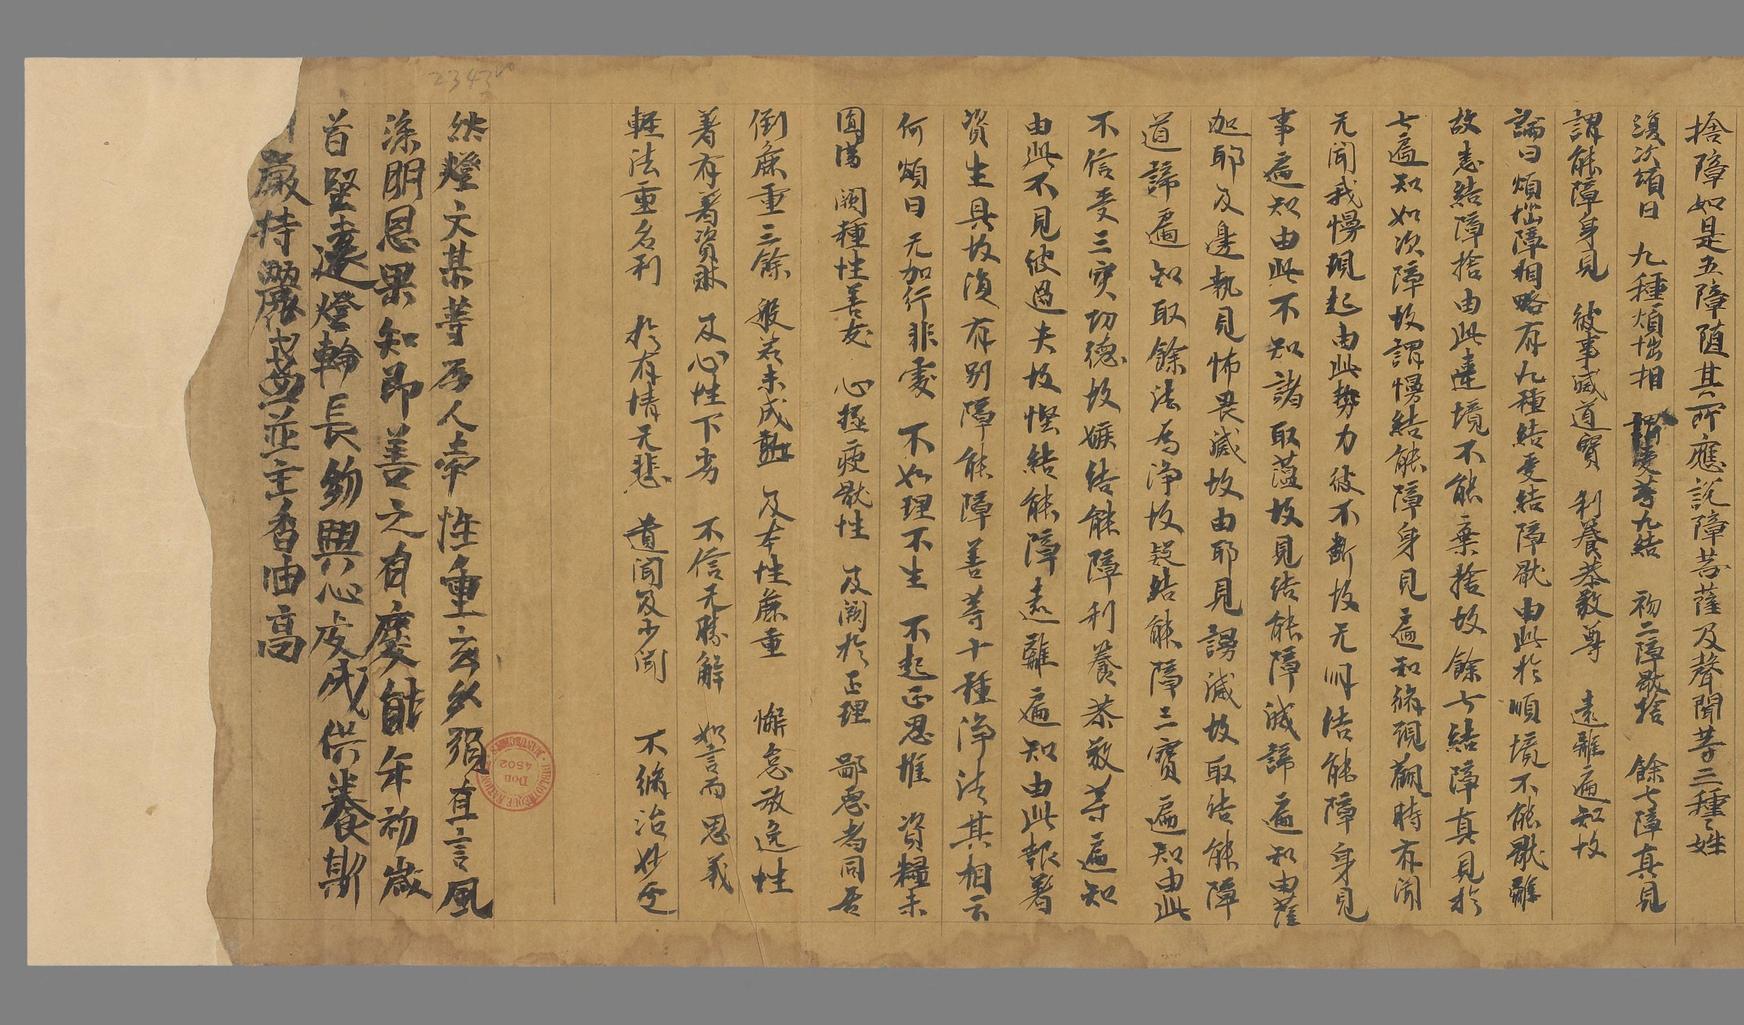 捨障如是五障随其所應說障菩薩及聲聞等三種種姓
復次頌曰 九種煩惱相 謂愛等九結 初二障猒捨 餘七障真見
謂能障身見 彼事滅道寳 利養恭敬尊 遠離遍知故
論曰煩惱障相略有九種結愛結障猒由此於順境不能猒離
故恚結障捨由此違境不能棄捨故餘七結障真見於
七遍知如次障故謂慢結能障身見遍知修現觀時有聞
无聞我慢現起由此勢力彼不断故无明结能障身見
事遍知由此不知諸取蕴故見结能障滅諦遍知由薩
迦耶及邊執見怖畏滅故由耶見謗滅故取结能障
道諦遍知取餘法為淨故疑结能障三寳遍知由此
不信受三寳功德故嫉结能障利養恭敬等遍知
由此不見彼過失故慳结能障遠離遍知由此躭著
資生具故復有别障能障善等十種淨法其相云
何頌曰 无加行非處 不如理不生 不起正思惟 資糧未
圓滿 闕種性善友 心極疲猒性 及闕於正理 鄙惡者同居
倒麁重三餘 般若未成熟 及本性麁重 懈怠放逸性
著有著資財 及心性下劣 不信无勝解 如言而思義
軽法重名利 於有情无悲 遺聞及少聞 不修治妙定
然燈文某等寿人帝性重玄幺須直言風
深明恩果知即善之有慶能年初歲
首堅遠燈輪長釰興心虔成供養斯
嚴持 並主香油高
2343